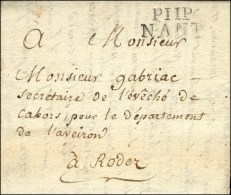 P11P
NANT
A Monsieur
Monsieur gabriac
Secrétaire de l'évêché de
Cahors, pour le département
de l'aveiron
à Rodez